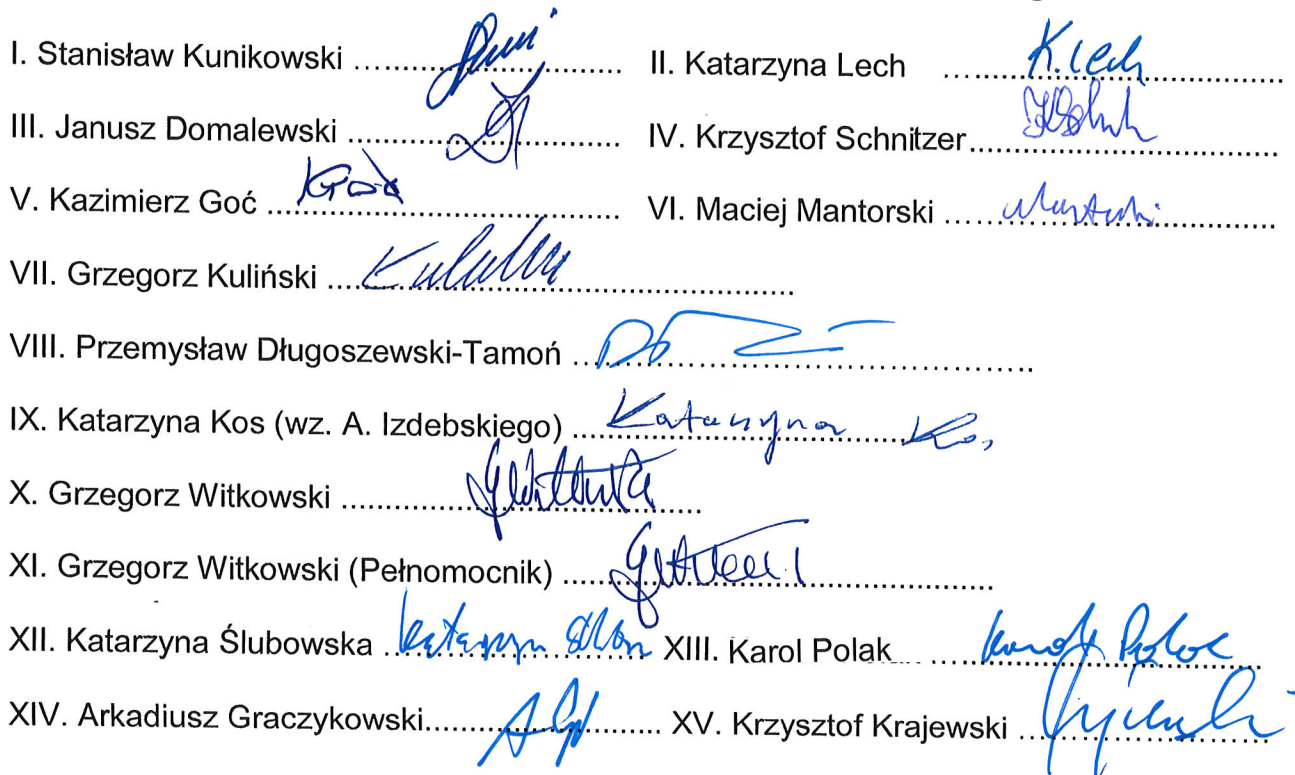 I. Stanisław Kunikowski ........................... II. Katarzyna Lech ........ K. Lech ........
III. Janusz Domalewski ........................... IV. Krzysztof Schnitzer ...........................
V. Kazimierz Goć ........ KGoć ........ VI. Maciej Mantorski ...........................
VII. Grzegorz Kuliński ...........................
VIII. Przemysław Długoszewski-Tamoń ...........................
IX. Katarzyna Kos (wz. A. Izdebskiego) ........ Katarzyna Kos ........
X. Grzegorz Witkowski ...........................
XI. Grzegorz Witkowski (Pełnomocnik) ...........................
XII. Katarzyna Ślubowska ........ Katarzyna ........ XIII. Karol Polak ........ Karol Polak ........
XIV. Arkadiusz Graczykowski ........................... XV. Krzysztof Krajewski ...........................